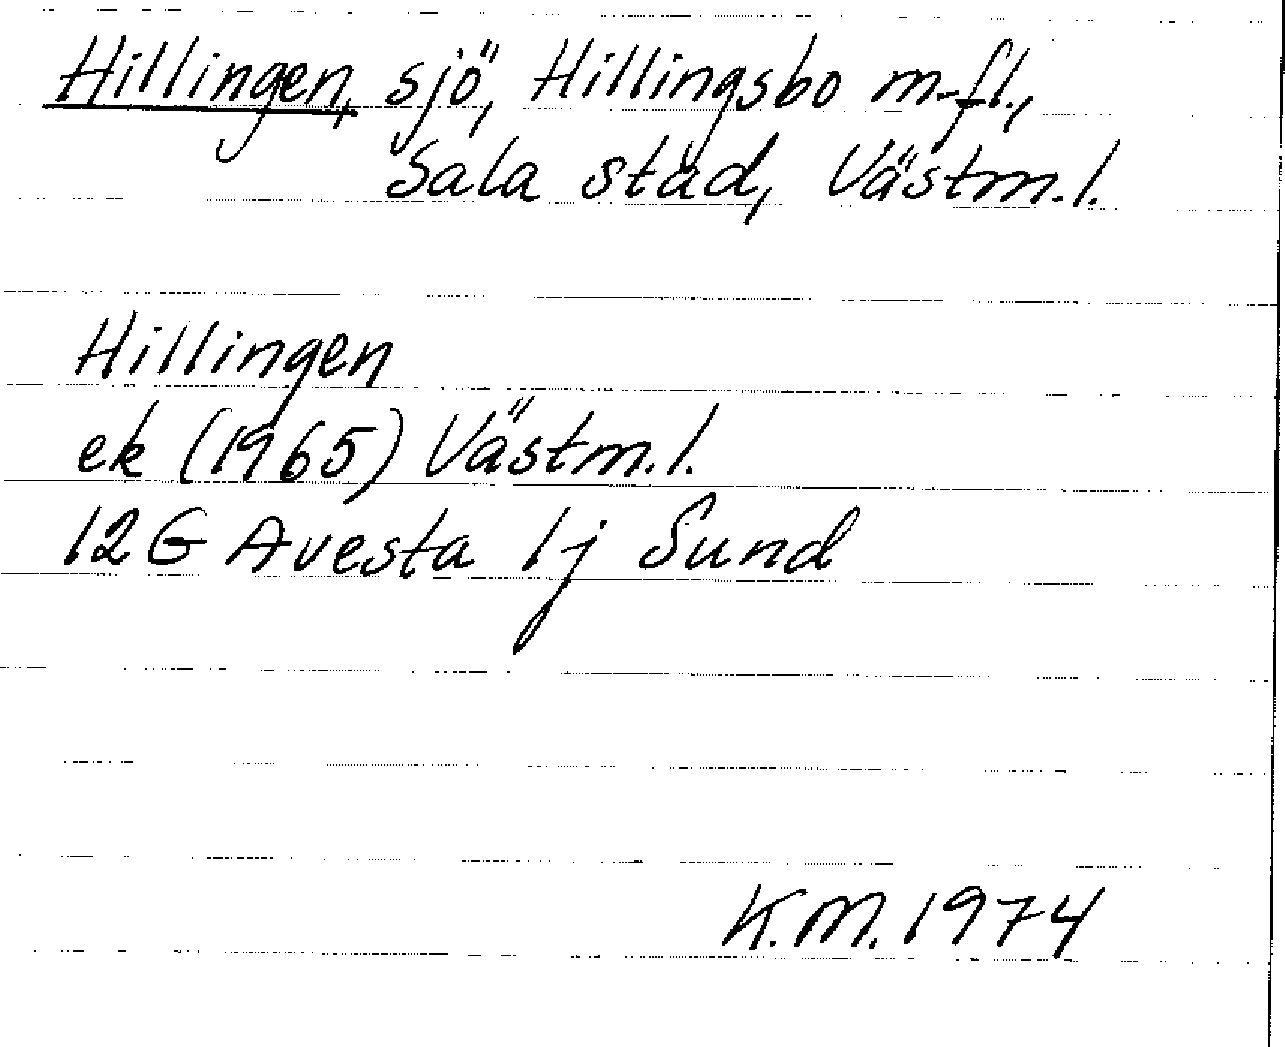 Hillingen, sjö, Hillingsbo m.fl.,
Sala stad, Västm.l.
Hillingen
ek (1965) Västm.l.
12G Avesta 1j Sund
K.M. 1974